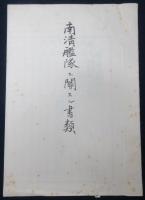 南清艦隊ニ関スル書類